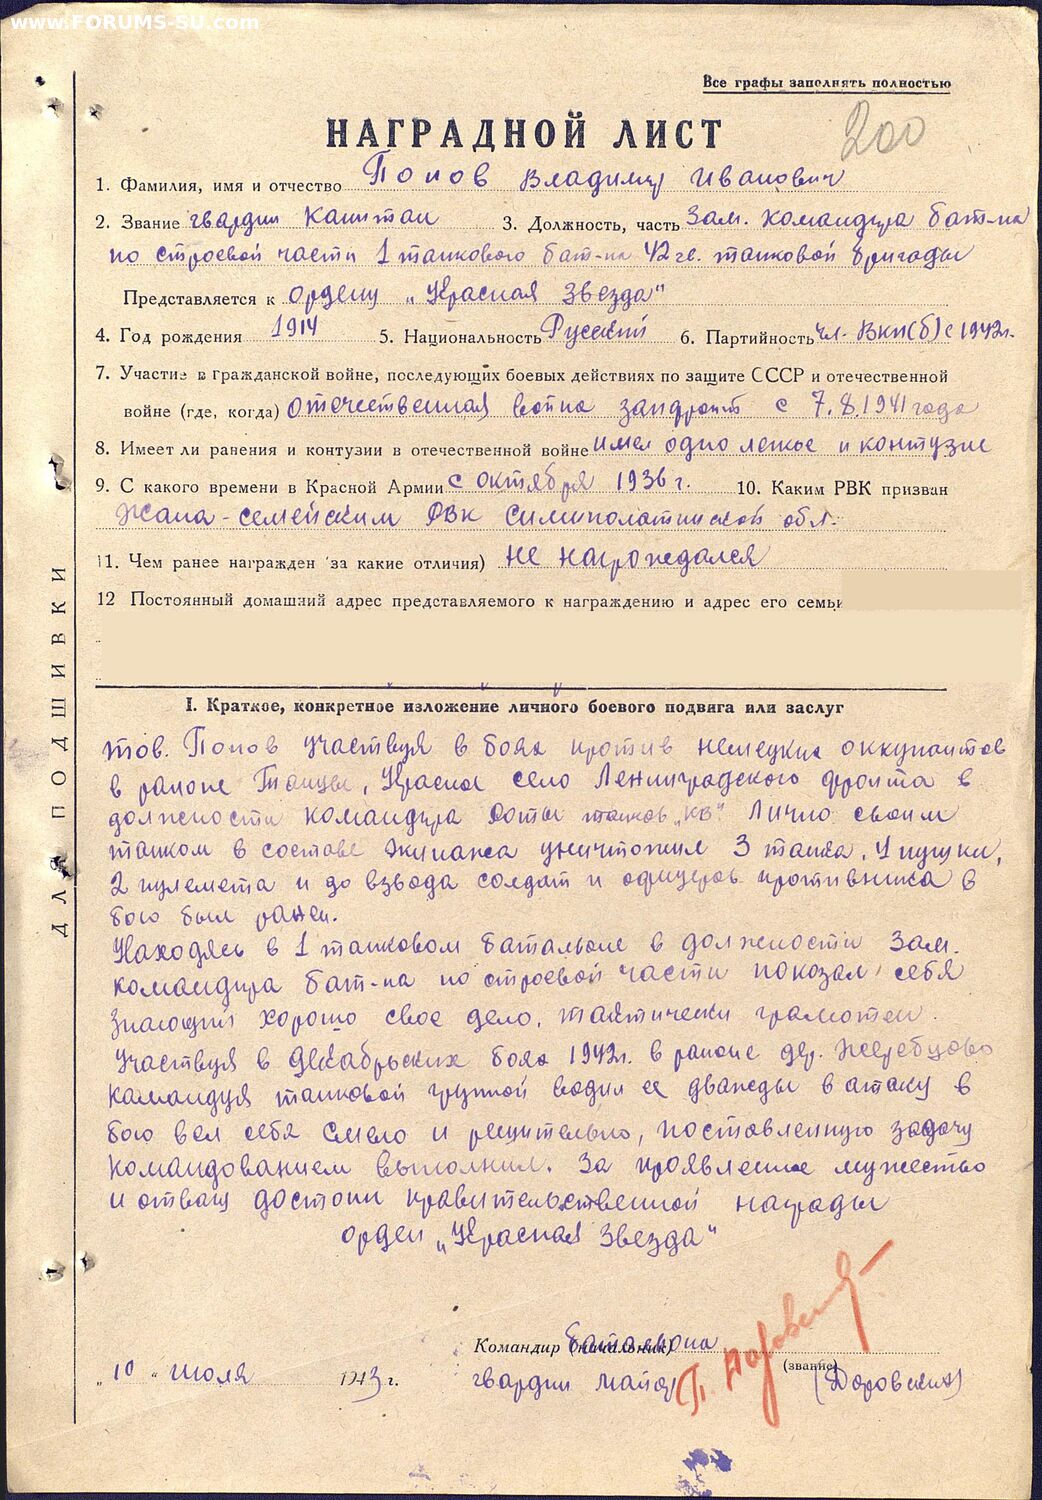 www.FORUMS-SU.com
Все графы заполнять полностью
200
НАГРАДНОЙ ЛИСТ
1. Фамилия, имя и отчество Попов Владимир Иванович
2. Звание гвардии Капитан 3. Должность, часть Зам. командира бат-на
по строевой части 1 танкового бат-на 42 гв. танковой бригады
Представляется к ордену „Красная Звезда"
4. Год рождения 1914 5. Национальность Русский 6. Партийность чл. ВКП(б) с 1942г.
7. Участие в гражданской войне, последующих боевых действиях по защите СССР и отечественной
войне (где, когда) отечественная война запфронт с 7.8.1941 года
8. Имеет ли ранения и контузии в отечественной войне имел одно легкое и контузие
9. С какого времени в Красной Армии с октября 1936 г. 10. Каким РВК призван
Жана-семейским РВК Симиполатинской обл.
11. Чем ранее награжден за какие отличия) не награждался
12 Постоянный домашний адрес представляемого к награждению и адрес его семьи
ДЛЯ ПОДШИВКИ
I. Краткое, конкретное изложение личного боевого подвига или заслуг
тов. Попов участвуя в боях против немецких оккупантов
в районе Тайцы, Красное село Ленинградского фронта в
должности командира роты танков „КВ" Лично своим
танком в составе экипажа уничтожил 3 танка, 1 пушки,
2 пулемета и до взвода солдат и офицеров противника в
бою был ранен.
Находясь в 1 танковом батальоне в должности Зам.
командира бат-на по строевой части показал себя
знающий хорошо свое дело, тактически грамотен.
Участвуя в декабрьских боях 1942г. в районе дер. Жеребцово
командуя танковой группой водил ее дважды в атаку в
бою вел себя смело и решительно, поставленную задачу
командованием выполнил. За проявленное мужество
и отвагу достоин правительственной награды
орден „Красная Звезда"
Командир (начальник) батальона
гвардии майор (звание) (Доровский)
„10" июля 1943 г.